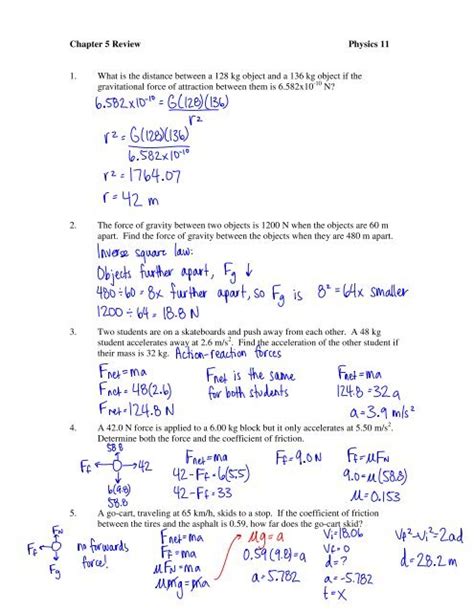 Chapter 5 Review Physics 11
1. What is the distance between a 128 kg object and a 136 kg object if the
gravitational force of attraction between them is 6.582x10⁻¹⁰ N?
6.582x10⁻¹⁰ = G(128)(136)
r²
r² = G(128)(136)
6.582x10⁻¹⁰
r² = 1764.07
r = 42 m
2. The force of gravity between two objects is 1200 N when the objects are 60 m
apart. Find the force of gravity between the objects when they are 480 m apart.
Inverse square law:
Objects further apart, Fg ↓
480 ÷ 60 = 8x further apart, so Fg is 8² = 64x smaller
1200 ÷ 64 = 18.8 N
3. Two students are on a skateboards and push away from each other. A 48 kg
student accelerates away at 2.6 m/s². Find the acceleration of the other student if
their mass is 32 kg. Action-reaction forces
Fnet = ma Fnet is the same Fnet = ma
Fnet = 48(2.6) for both students 124.8 = 32a
Fnet = 124.8 N a = 3.9 m/s²
4. A 42.0 N force is applied to a 6.00 kg block but it only accelerates at 5.50 m/s².
Determine both the force and the coefficient of friction.
58.8
Ff 42 Fnet = ma Ff = 9.0 N Ff = μFN
42 - Ff = 6(5.5) 9.0 = μ(58.8)
6(9.8) 42 - Ff = 33 μ = 0.153
58.8
5. A go-cart, traveling at 65 km/h, skids to a stop. If the coefficient of friction
between the tires and the asphalt is 0.59, how far does the go-cart skid?
FN Fnet = ma μg = a Vi = 18.06 Vf² - Vi² = 2ad
Ff no forwards Ff = ma 0.59(9.8) = a Vf = 0 d = 28.2 m
force! μFN = ma a = 5.782 d = ?
Fg μmg = ma a = -5.782
t = x